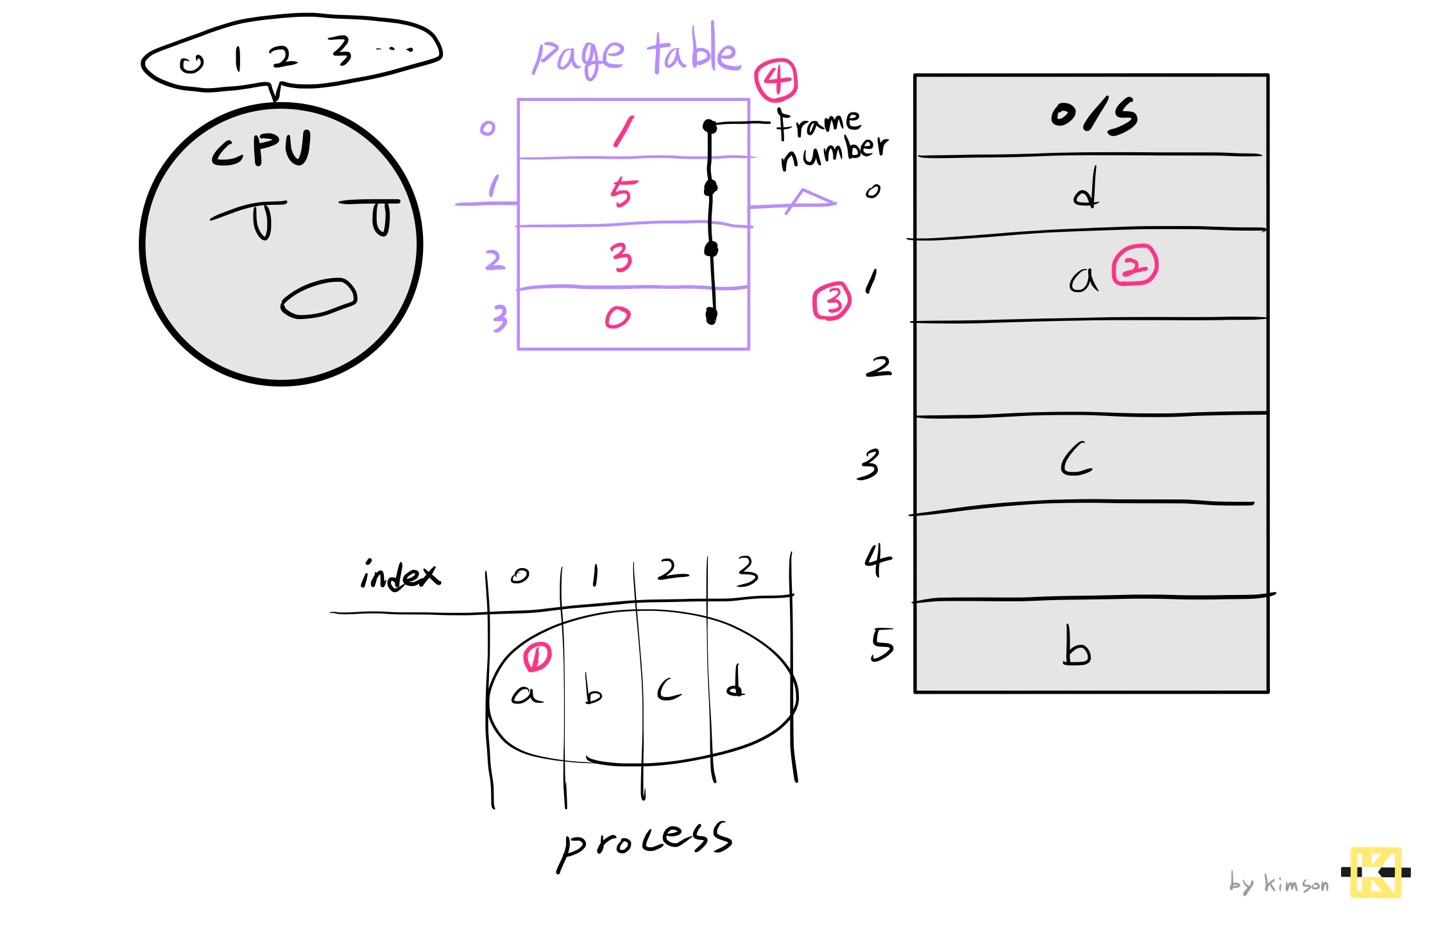 0 1 2 3 ...
CPU
page table
④
0 1
1 5
2 3
3 0
Frame
number
O/S
0 d
1 a ②
③
2
3 c
4
5 b
index 0 1 2 3
①
a b c d
process
by kimson
K